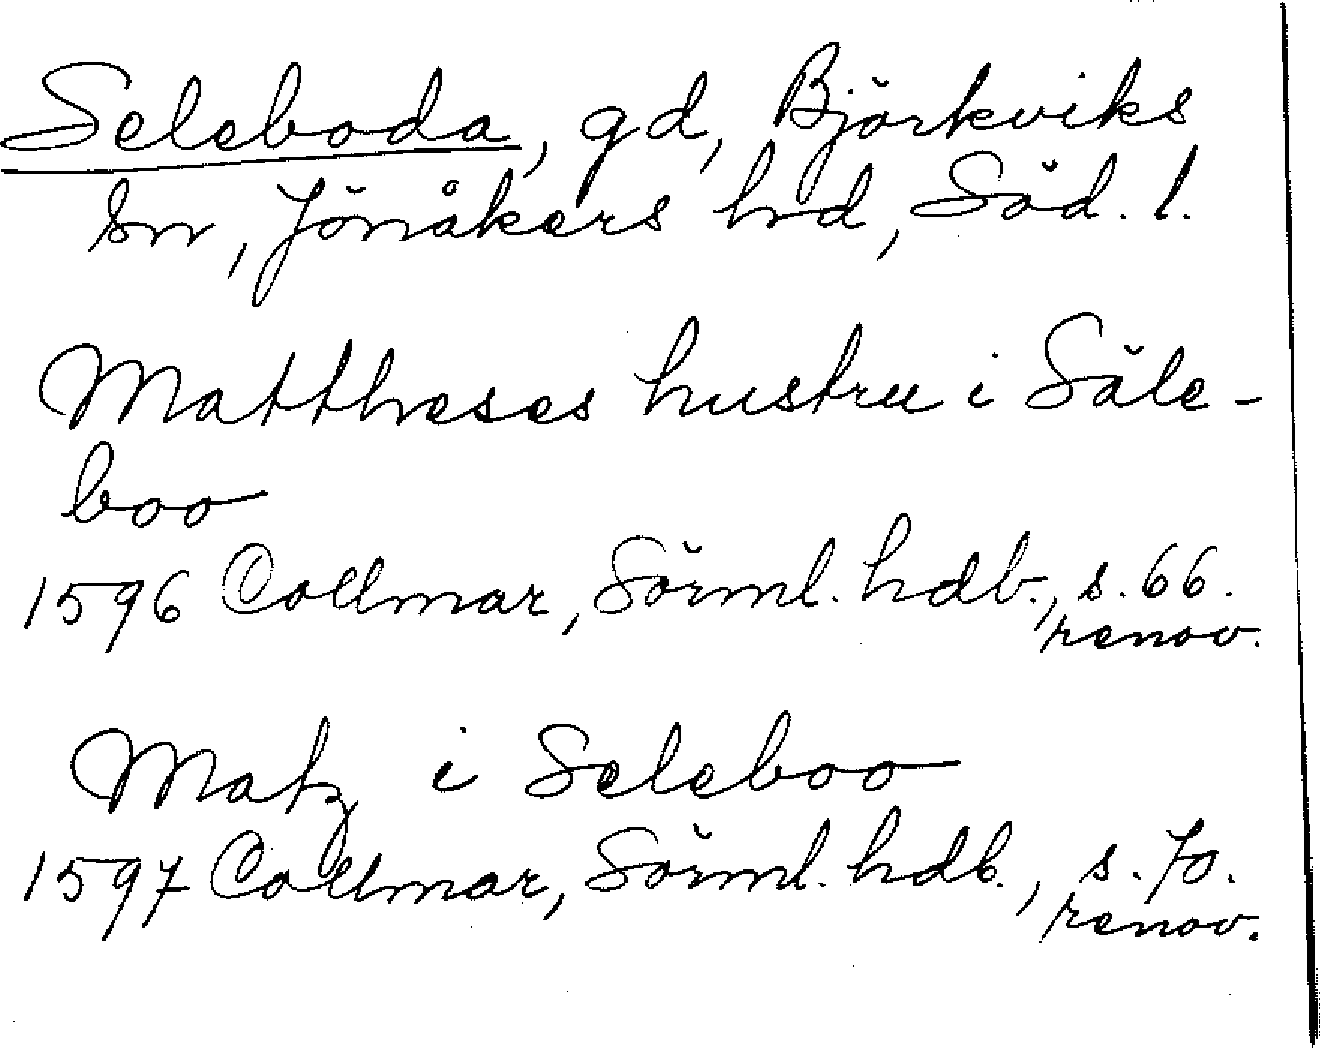 Seleboda, gd, Björkviks
sn, Jönåkers hrd, Söd. l.
Mattheses hustru i Säle-
boo
1596 Collmar, Sörml. hdb., s. 66.
renov.
Matz i Seleboo
1597 Collmar, Sörml. hdb., s. 70.
renov.